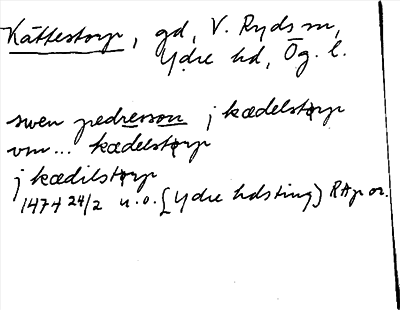 Kättestorp, gd, V. Ryds sn,
Ydre hd, Ög. l.
swen pedresson j kædelstorp
vm... kædelstorp
j kædilstorp
1474 24/2 u.o. [Ydre hdsting) RAp or.